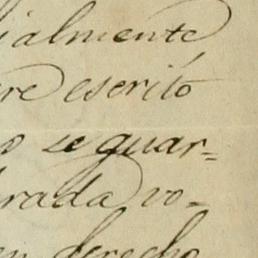 ialmente
re escritó
o se guar=
rada vo-
en derecho